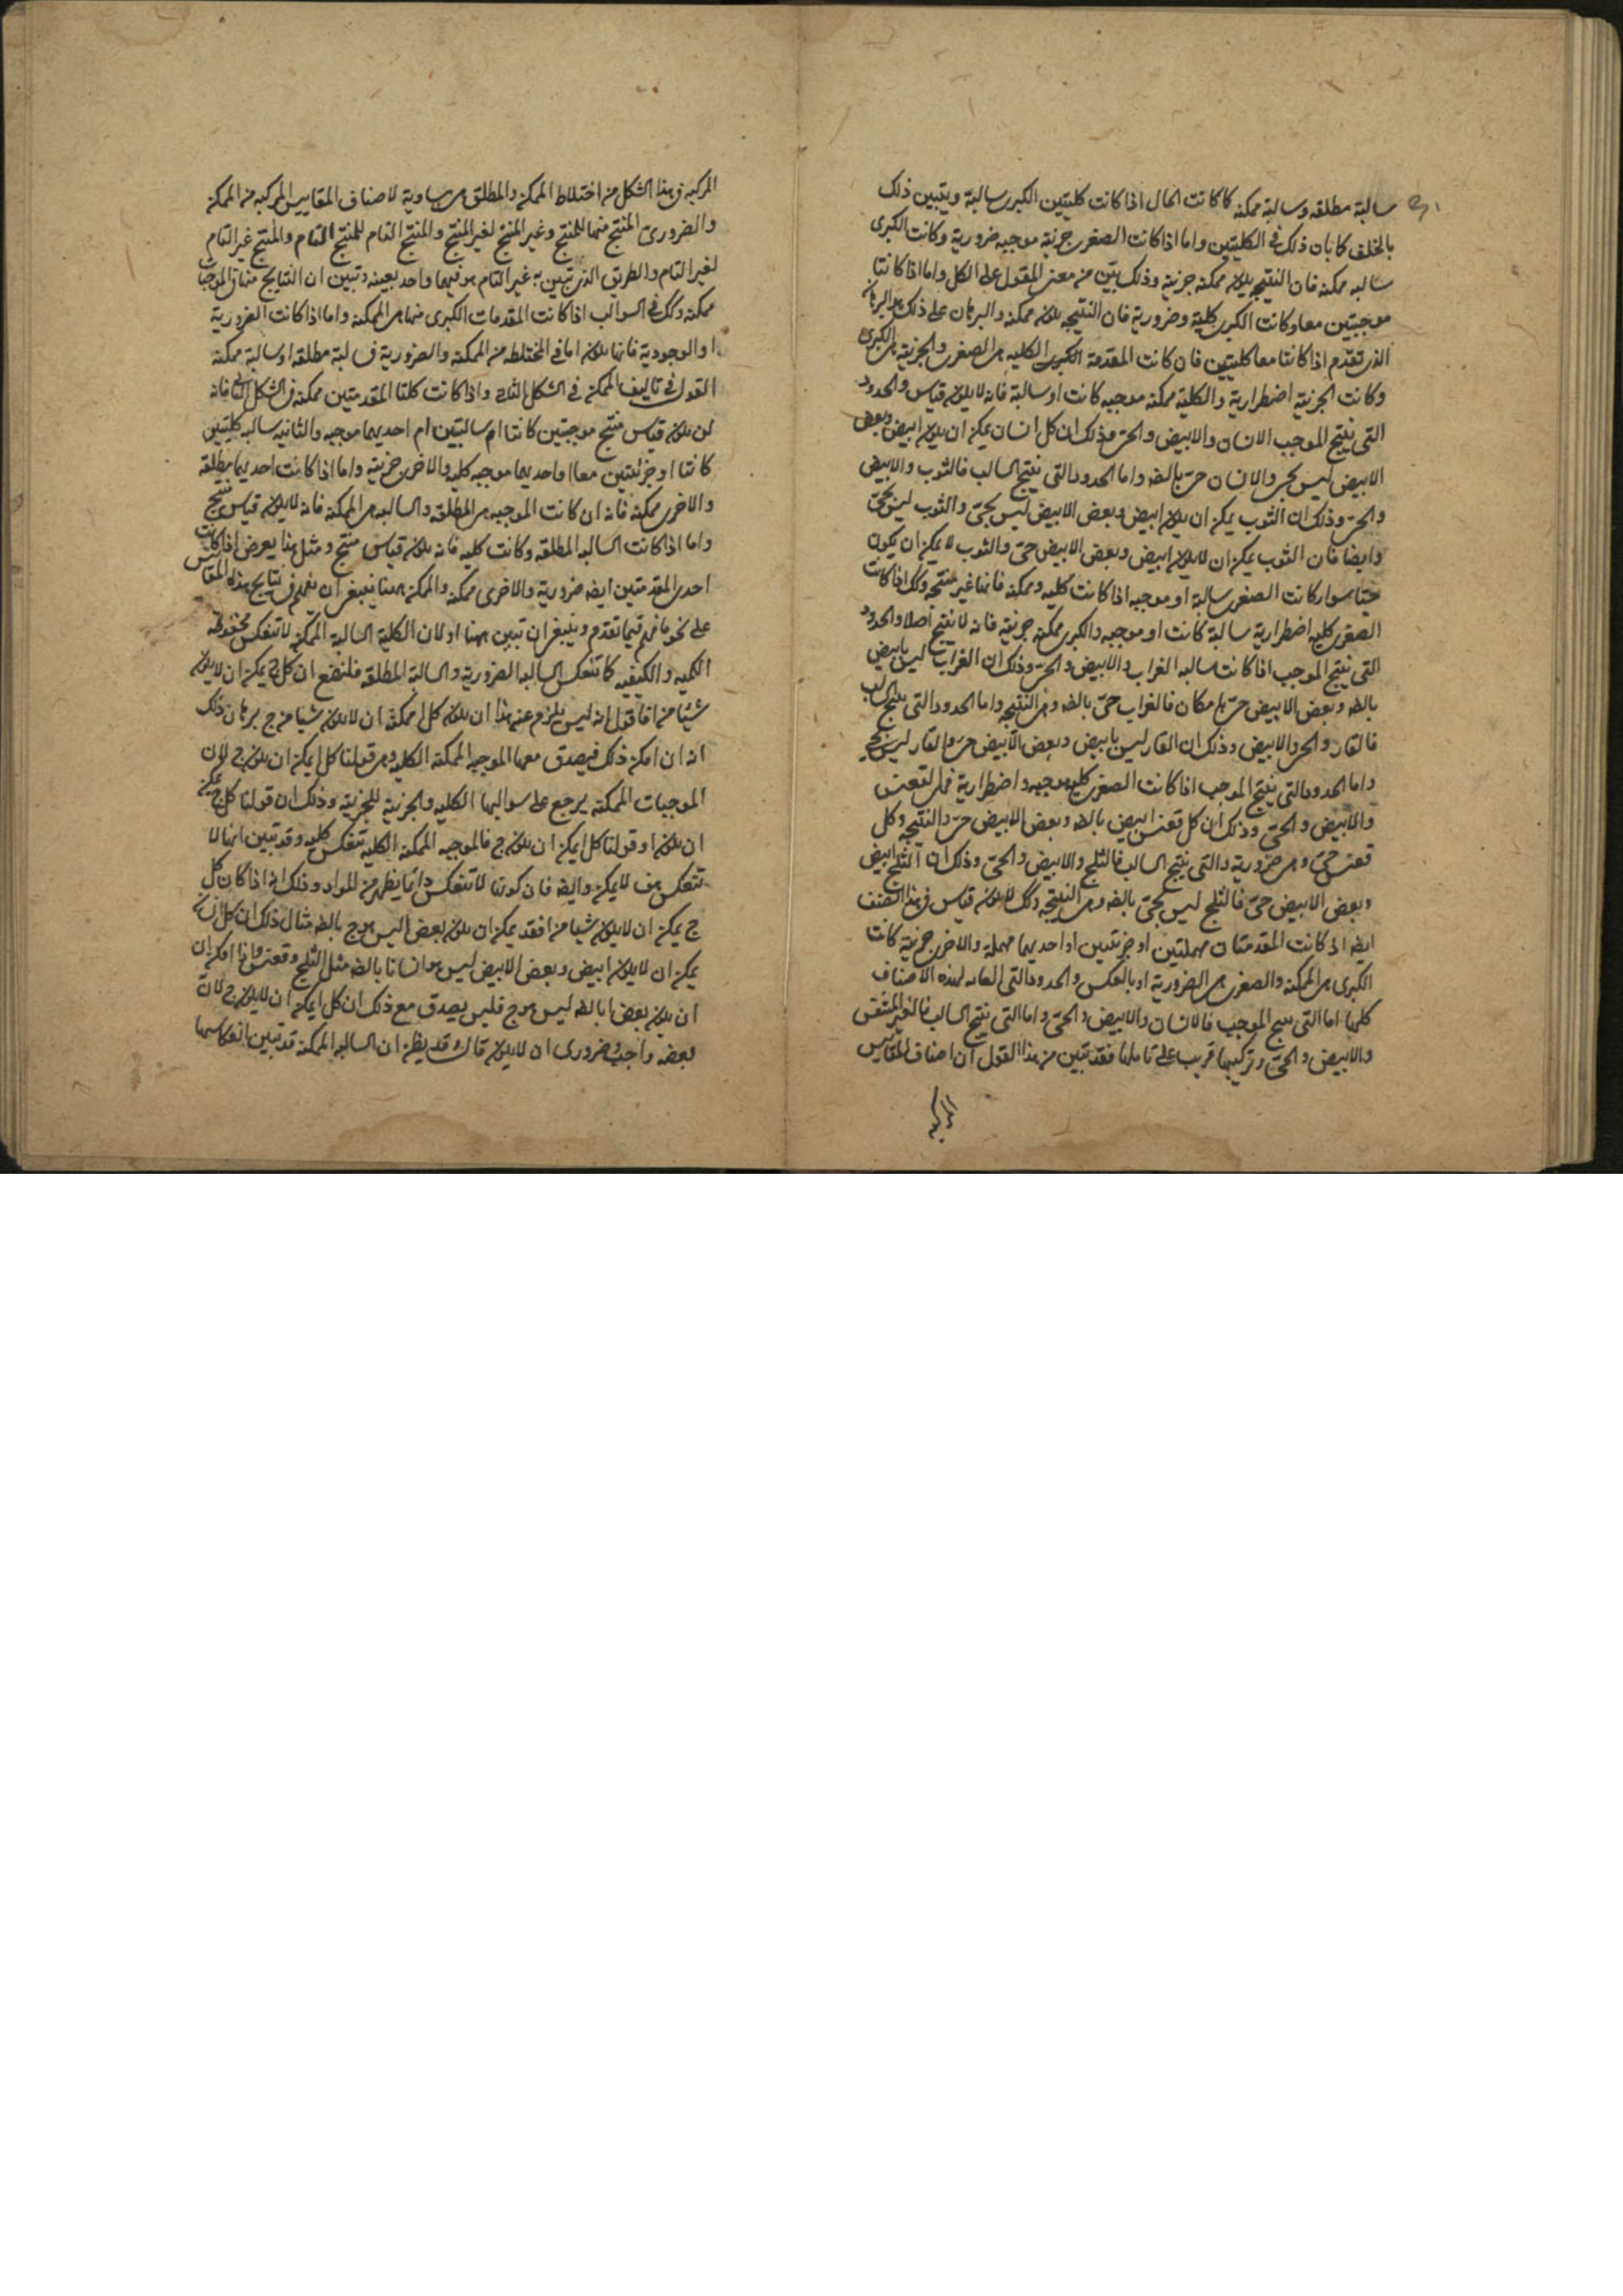 سالبة مطلقه وسالبة ممكنه كما كانت الحال اذا كانت كليتين الكبرى سالبة ويتبين ذلك
بالخلف كما بان ذلك في الكليتين واما اذا كانت الصغرى جزئية موجبه ضرورية وكانت الكبرى
سالبه ممكنه فان النتيجه يكون ممكنه جزئية وذلك بيّن من معنى المقول على الكل واما اذا كانتا
موجبتين معا وكانت الكبرى كلية وضرورية فان النتيجه يكون ممكنه والبرهان على ذلك هو البرهان
الذى تقدم اذا كانتا معا كليتين فان كانت المقدمة الكبرى الكليه هى الصغرى والجزئية هى الكبرى
وكانت الجزئية اضطرارية والكلية ممكنه موجبه كانت او سالبة فانه لا يكون قياس والحدود
التى ينتج الموجب الانسان والابيض والحىّ وذلك ان كل انسان يمكن ان يكون ابيض وبعض
الابيض ليس بحى والانسان حىّ بالضه واما الحدود التى ينتج السالب فالثوب والابيض
والحىّ وذلك ان الثوب يمكن ان يكون ابيض وبعض الابيض ليس بحىّ والثوب ليس بحىّ
وايضا فان الثوب يمكن ان لا يكون ابيض وبعض الابيض حىّ والثوب لا يمكن ان يكون
حيّا سواء كانت الصغرى سالبة او موجبه اذا كانت كليه وممكنه فانها غير منتجه وكك اذا كانت
الصغرى كليه اضطرارية سالبة كانت او موجبه والكبرى ممكنه جزئية فانه لا ينتج اصلا والحدود
التى ينتج الموجب اذا كانت سالبه الغراب والابيض والحىّ وذلك ان الغراب ليس بابيض
بالضه وبعض الابيض حىّ بامكان فالغراب حىّ بالضه وهى النتيجه واما الحدود التى ينتج السالب
فالقار والحىّ والابيض وذلك ان القار ليس بابيض وبعض الابيض حىّ والقار ليس بحىّ
واما الحدود التى ينتج الموجب اذا كانت الصغرى كليه موجبه واضطرارية فهى لقعنس
والابيض والحىّ وذلك ان كل قعنس ابيض بالضه وبعض الابيض حىّ والنتيجه وكل
قعنس حىّ وهى ضرورية والتى ينتج السالب فالثلج والابيض والحىّ وذلك ان الثلج ابيض
وبعض الابيض حىّ فالثلج ليس بحىّ بالضه وهى النتيجه وكك لا يكون قياس فى هذا الصنف
ايضه اذ كانت المقدمتان مهملتين او جزئتيين او احديهما مهملة والاخرى جزئية كانت
الكبرى هى الممكنه والصغرى هى الضرورية او بالعكس والحدود التى العامه لهذه الاصناف
كلها اما التى ينتج الموجب فالانسان والابيض والحىّ واما التى ينتج السالب فالغير المتنفس
والابيض والحىّ وتركيبها قريب على تاملها فقد تبين من هذا القول ان اصناف المقاييس
المركبه
المركبه فى هذا الشكل من اختلاط الممكنه والمطلقه هى مساوية لاصناف المقاييس المركبه من الممكنه
والضرورى المنتج منها للمنتج وغير المنتج لغير المنتج والمنتج التام للمنتج التام والمنتج غير التام
لغير التام والطريق الذى تبين به غير التام هو فيهما واحد بعينه وتبين ان النتايج منها فى الموجبات
ممكنه وكك فى السوالب اذا كانت المقدمات الكبرى منها هى الممكنه واما اذا كانت الضرورية
او الوجودية فانها يكون اما فى المختلطه من الممكنه والضرورية فسالبة مطلقه او سالبة ممكنه
القول فى تاليف الممكن فى الشكل الثانى واذا كانت كلتا المقدمتين ممكنه فى الشكل الثانى فانه
لن يكون قياس منتج موجبتين كانتا ام سالبتين ام احديهما موجبه والثانيه سالبه كليتين
كانتا او جزئيتين معا او احديهما موجبه كليه والاخرى جزئيه واما اذا كانت احديهما مطلقه
والاخرى ممكنه فانه ان كانت الموجبه هى المطلقه والسالبه هى الممكنه فانه لا يكون قياس منتج
واما اذا كانت السالبه المطلقه وكانت كليه فانه يكون قياس منتج ومثل هذا يعرض اذا كانت
احدى المقدمتين ايضه ضرورية والاخرى ممكنه والممكنه ههنا ينبغى ان يفهم فى نتايج هذه المقاييس
على نحو ما فهم فيما تقدم وينبغى ان تبين ههنا اولا ان الكلية السالبة الممكنه لا تنعكس محفوظه
الكميه والكيفيه كما تنعكس السالبه الضرورية والسالبة المطلقه فلنضع ان كل ج يمكن ان لا يكون
شيئا من ا فاقول انه ليس يلزم عنه هذا ان يكون كل ا ممكنه ان لا يكون شيئا من ج برهان ذلك
انه ان امكن ذلك فيصدق معها الموجبه الممكنه الكليه وهى قولنا كل ا يمكن ان يكون ج لان
الموجبات الممكنه يرجع على سوالبها الكليه والجزئية للجزئية وذلك ان قولنا كل ج يمكن
ان يكون ا وقولنا كل ا يمكن ان يكون ج فالموجبه الممكنه الكليه تنعكس كليه وقد تبين انها لا
تنعكس هف لا يمكن وايضه فان كونها لا تنعكس دائما يظهر من المواد وذلك انه اذا كان كل
ج يمكن ان لا يكون شيئا من ا فقد يمكن ان يكون بعض ا ليس هو ج بالضه مثال ذلك ان كل انسان
يمكن ان لا يكون ابيض وبعض الابيض ليس هو انسانا بالضه مثل الثلج وقعنس واذا امكن ان
ان يكون بعض ا بالضه ليس هو ج فليس يصدق مع ذلك ان كل ا يمكن ان لا يكون ج لان
بعضه واجب وضرورى ان لا يكون قال وقد يظن ان السالبه الممكنه قد تبين انعكاسها